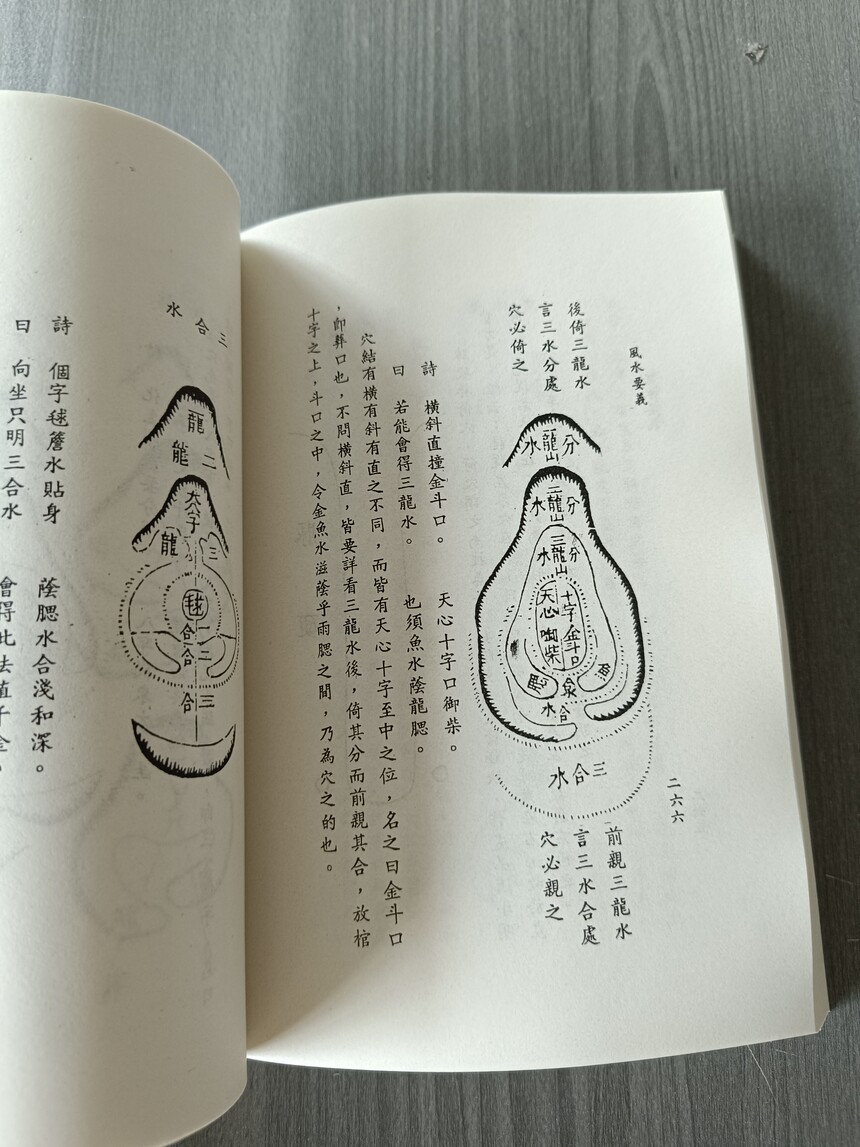 風水要義
二六六
後倚三龍水
言三水分處
穴必倚之
分龍水
山
分二龍水
山
分三龍水
山
十字金斗口
天心啣柴
魚
腮
合水
三合水
前親三龍水
言三水合處
穴必親之
詩 橫斜直撞金斗口。 天心十字口御柴。
曰 若能會得三龍水。 也須魚水蔭龍腮。
穴結有橫有斜有直之不同，而皆有天心十字至中之位，名之曰金斗口
，即葬口也，不問橫斜直，皆要詳看三龍水後，倚其分而前親其合，放棺
十字之上，斗口之中，令金魚水滋蔭乎兩腮之間，乃為穴之的也。
三合水
龍
二龍
三龍
毬
一合
二合
三合
詩 個字毬簷水貼身 蔭腮水合淺和深。
曰 向坐只明三合水 會得此法值千金。